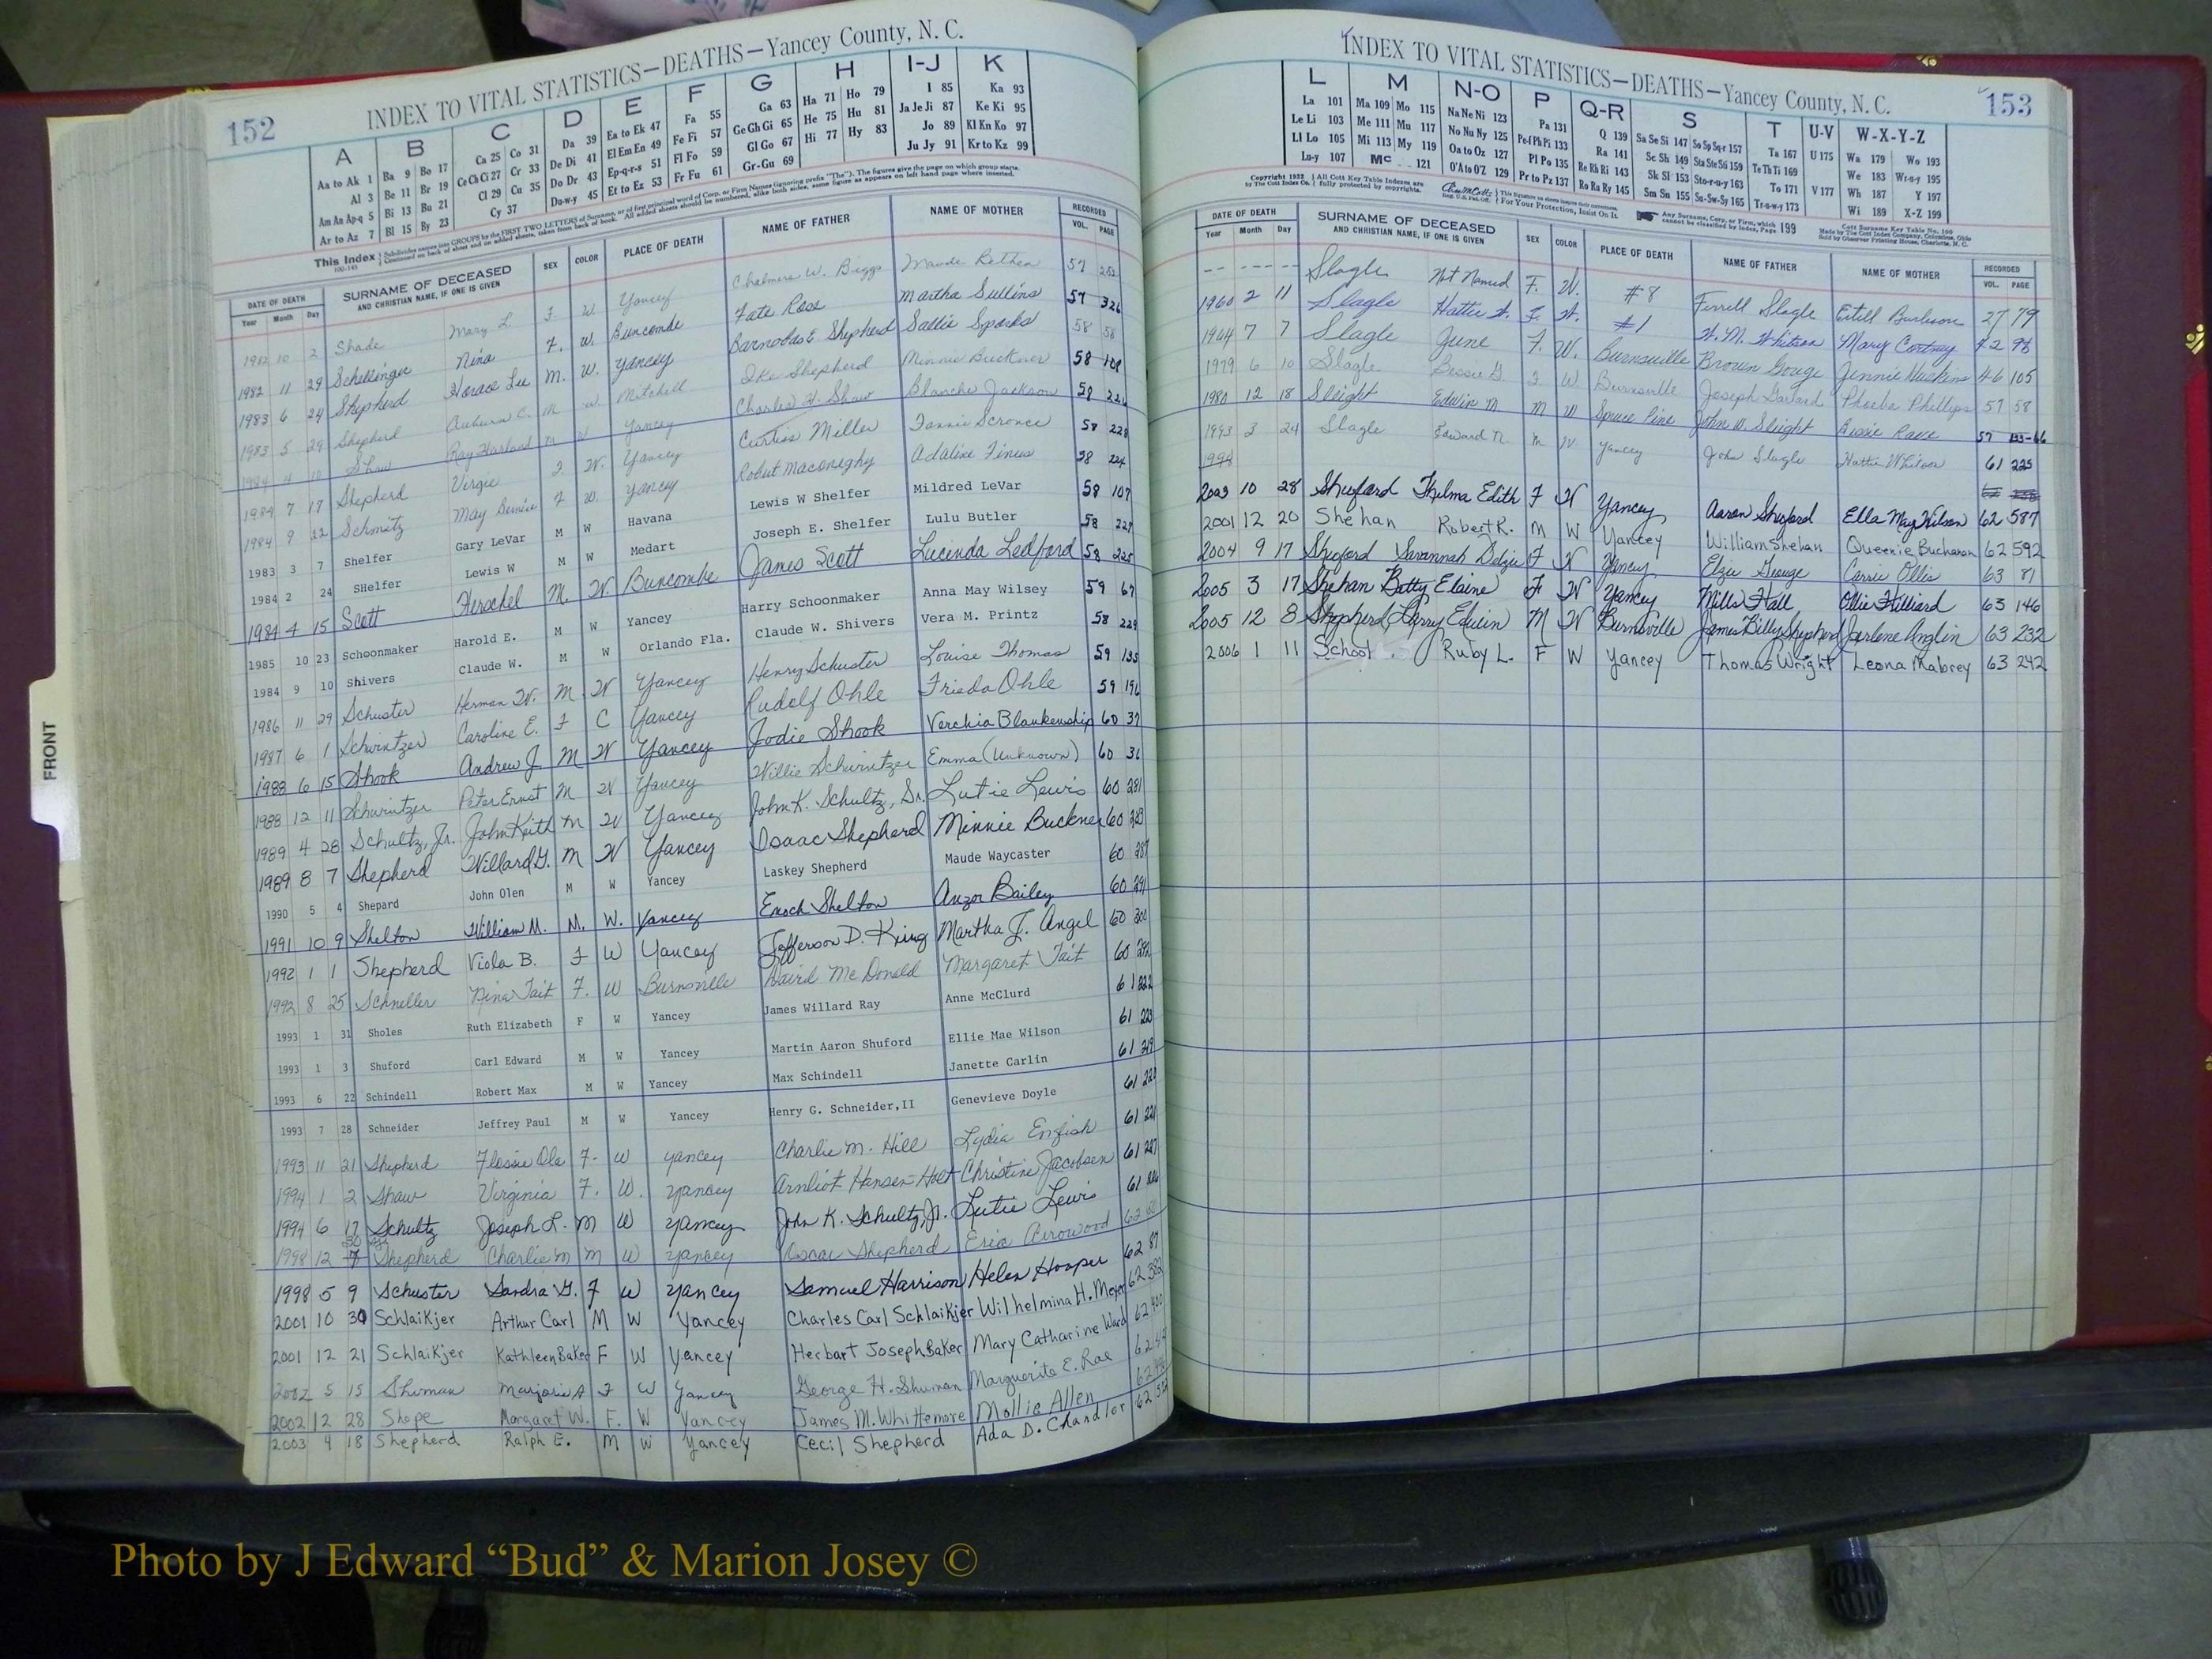 FRONT
152
INDEX TO VITAL STATISTICS—DEATHS—Yancey County, N. C.
A B C D E F G H I-J K
Aa to Ak 1 Ba 9 Bo 17 Ca 25 Co 31 Da 39 Ea to Ek 47 Fa 55 Ga 63 Ha 71 Ho 79 I 85 Ka 93
Al 3 Be 11 Br 19 Ce Ch Ci 27 Cr 33 De Di 41 El Em En 49 Fe Fi 57 Ge Gh Gi 65 He 75 Hu 81 Ja Je Ji 87 Ke Ki 95
Am An Ap-q 5 Bi 13 Bu 21 Cl 29 Cu 35 Do Dr 43 Ep-q-r-s 51 Fl Fo 59 Gl Go 67 Hi 77 Hy 83 Jo 89 Kl Kn Ko 97
Ar to Az 7 Bl 15 By 23 Cy 37 Du-w-y 45 Et to Ez 53 Fr Fu 61 Gr-Gu 69 Ju Jy 91 Kr to Kz 99
This Index
DATE OF DEATH SURNAME OF DECEASED SEX COLOR PLACE OF DEATH NAME OF FATHER NAME OF MOTHER RECORDED
Year Month Day AND CHRISTIAN NAME, IF ONE IS GIVEN VOL. PAGE
1982 10 2 Shade Mary L. F W. Yancey Chalmers W. Biggs Maude 57
1982 11 29 Schellinger Nina F. W. Buncombe Fate Rose Martha Sullins 57 326
1983 6 24 Shepherd Horace Lee M. W. Yancey Barnobas E Shepherd Sallie Sparks 58 58
1983 5 29 Shepherd Auburn C. M W Mitchell Ike Shepherd Minnie Buckner 58 108
1984 4 10 Shaw Ray Harland M W Yancey Charles H. Shaw Blanche Jackson 58 226
1984 7 17 Shepherd Virgie F W. Yancey Curtiss Miller Fannie Scronce 58 228
1984 9 22 Schmitz May F W. Yancey Robert Maconeghy Adaline 58 224
1983 3 7 Shelfer Gary LeVar M W Havana Lewis W Shelfer Mildred LeVar 58 107
1984 2 24 SHelfer Lewis W M W Medart Joseph E. Shelfer Lulu Butler 58 227
1984 4 15 Scott Herschel M. W. Buncombe James Scott Lucinda Ledford 58 225
1985 10 23 Schoonmaker Harold E. M W Yancey Harry Schoonmaker Anna May Wilsey 59 67
1984 9 10 Shivers Claude W. M W Orlando Fla. Claude W. Shivers Vera M. Printz 58 229
1986 11 29 Schuster Herman W. M W Yancey Henry Schuster Louise Thomas 59 135
1987 6 1 Schwintzer Caroline E. F C Yancey Rudolf Ohle Frieda Ohle 59 196
1988 6 15 Shook Andrew J. M W Yancey Jodie Shook Verchia Blankenship 60 37
1988 12 11 Schwintzer Peter Ernst M W Yancey Willie Schwintzer Emma (Unknown) 60 36
1989 4 28 Schultz, Jr. John Keith M W Yancey John K. Schultz, Sr. Lutie Lewis 60 281
1989 8 7 Shepherd Willard G. M W Yancey Isaac Shepherd Minnie Buckner 60 283
1990 5 4 Shepard John Olen M W Yancey Laskey Shepherd Maude Waycaster 60 287
1991 10 9 Shelton William M. M. W. Yancey Enoch Shelton Anzor Bailey 60 291
1992 1 1 Shepherd Viola B. F W Yancey Jefferson D. King Martha J. Angel 60 300
1992 8 25 Schneller Nina Tait F. W Burnsville Laird McDonald Margaret Tait 60
1993 1 31 Sholes Ruth Elizabeth F W Yancey James Willard Ray Anne McClurd 61 222
1993 1 3 Shuford Carl Edward M W Yancey Martin Aaron Shuford Ellie Mae Wilson 61 223
1993 6 22 Schindell Robert Max M W Yancey Max Schindell Janette Carlin 61 219
1993 7 28 Schneider Jeffrey Paul M W Yancey Henry G. Schneider,II Genevieve Doyle 61 220
1993 11 21 Shepherd Flossie Ola F- W Yancey Charlie M. Hill Lydia English 61 221
1994 1 2 Shaw Virginia F. W. Yancey Arnliot Hansen-Holt Christine Jacobsen 61 287
1994 6 17 Schultz Joseph L. M W Yancey John K. Schultz, Jr. Lutie Lewis 61
1998 12 Shepherd Charlie M M W Yancey Oscar Shepherd Eria Arrowood 62
1998 5 9 Schuster Sandra G. F W Yancey Samuel Harrison Helen Hooper 62 87
2001 10 30 Schlaikjer Arthur Carl M W Yancey Charles Carl Schlaikjer Wilhelmina H. Meyer 62 382
2001 12 21 Schlaikjer Kathleen Baker F W Yancey Herbart Joseph Baker Mary Catharine Ward 62 400
2002 5 15 Shuman Marjorie A F W Yancey George H. Shuman Marguerite E. Rae 62
2002 12 28 Shope Margaret W. F. W Yancey James M. Whittemore Mollie Allen 62
2003 4 18 Shepherd Ralph E. M W Yancey Cecil Shepherd Ada D. Chandler 62
INDEX TO VITAL STATISTICS—DEATHS—Yancey County, N. C.
153
L M N-O P Q-R S T U-V W-X-Y-Z
La 101 Ma 109 Mo 115 Na Ne Ni 123 Pa 131 Q 139 Sa Se Si 147 So Sp Sq-r 157 Ta 167 U 175 Wa 179 Wo 193
Le Li 103 Me 111 Mu 117 No Nu Ny 125 Pe-f Ph Pi 133 Ra 141 Sc Sh 149 Sta Ste Sti 159 Te Th Ti 169 We 183 Wr-u-y 195
Ll Lo 105 Mi 113 My 119 Oa to Oz 127 Pl Po 135 Re Rh Ri 143 Sk Sl 153 Sto-r-u-y 163 To 171 V 177 Wh 187 Y 197
Lu-y 107 Mc 121 O'A to O'Z 129 Pr to Pz 137 Ro Ru Ry 145 Sm Sn 155 Su-Sw-Sy 165 Tr-u-w-y 173 Wi 189 X-Z 199
Copyright 1922 by The Cott Index Co. All Cott Key Table Indexes are fully protected by copyrights. For Your Protection, Insist On It. Any Surname, Corp. or Firm, which cannot be classified by Index, Page 199
DATE OF DEATH SURNAME OF DECEASED SEX COLOR PLACE OF DEATH NAME OF FATHER NAME OF MOTHER RECORDED
Year Month Day AND CHRISTIAN NAME, IF ONE IS GIVEN VOL. PAGE
-- --- --- Slagle Not Named F. W. #8 Ferrell Slagle Estell Burleson 27 79
1960 2 11 Slagle Hattie W. F. W. #1 W. M. Whitson Mary Cortney 42 98
1964 7 7 Slagle June F. W. Burnsville Brown Gouge Jennie Huskins 46 105
1979 6 10 Slagle Bessie G. F W Burnsville Joseph Garland Phoebe Phillips 57 58
1980 12 18 Sleight Edwin M M W Spruce Pine John W Sleight Bessie 57
1993 3 24 Slagle Edward N. M W Yancey John Slagle Hattie Whitson 61 225
1998
2003 10 28 Shuford Thelma Edith F W Yancey Aaron Shuford Ella May Wilson 62 587
2001 12 20 Shehan Robert R. M W Yancey William Shehan Queenie Buchanan 62 592
2004 9 17 Shuford Savannah F W Yancey Elzie George Carrie Ollis 63 81
2005 3 17 Shehan Betty Elaine F W Yancey Mills Hall Ollie Hilliard 63 146
2005 12 8 Shepherd Larry Edwin M W Burnsville James Billy Shepherd Jarlene Anglin 63 232
2006 1 11 School Ruby L. F W Yancey Thomas Wright Leona Mabrey 63 242
Photo by J Edward “Bud” & Marion Josey ©